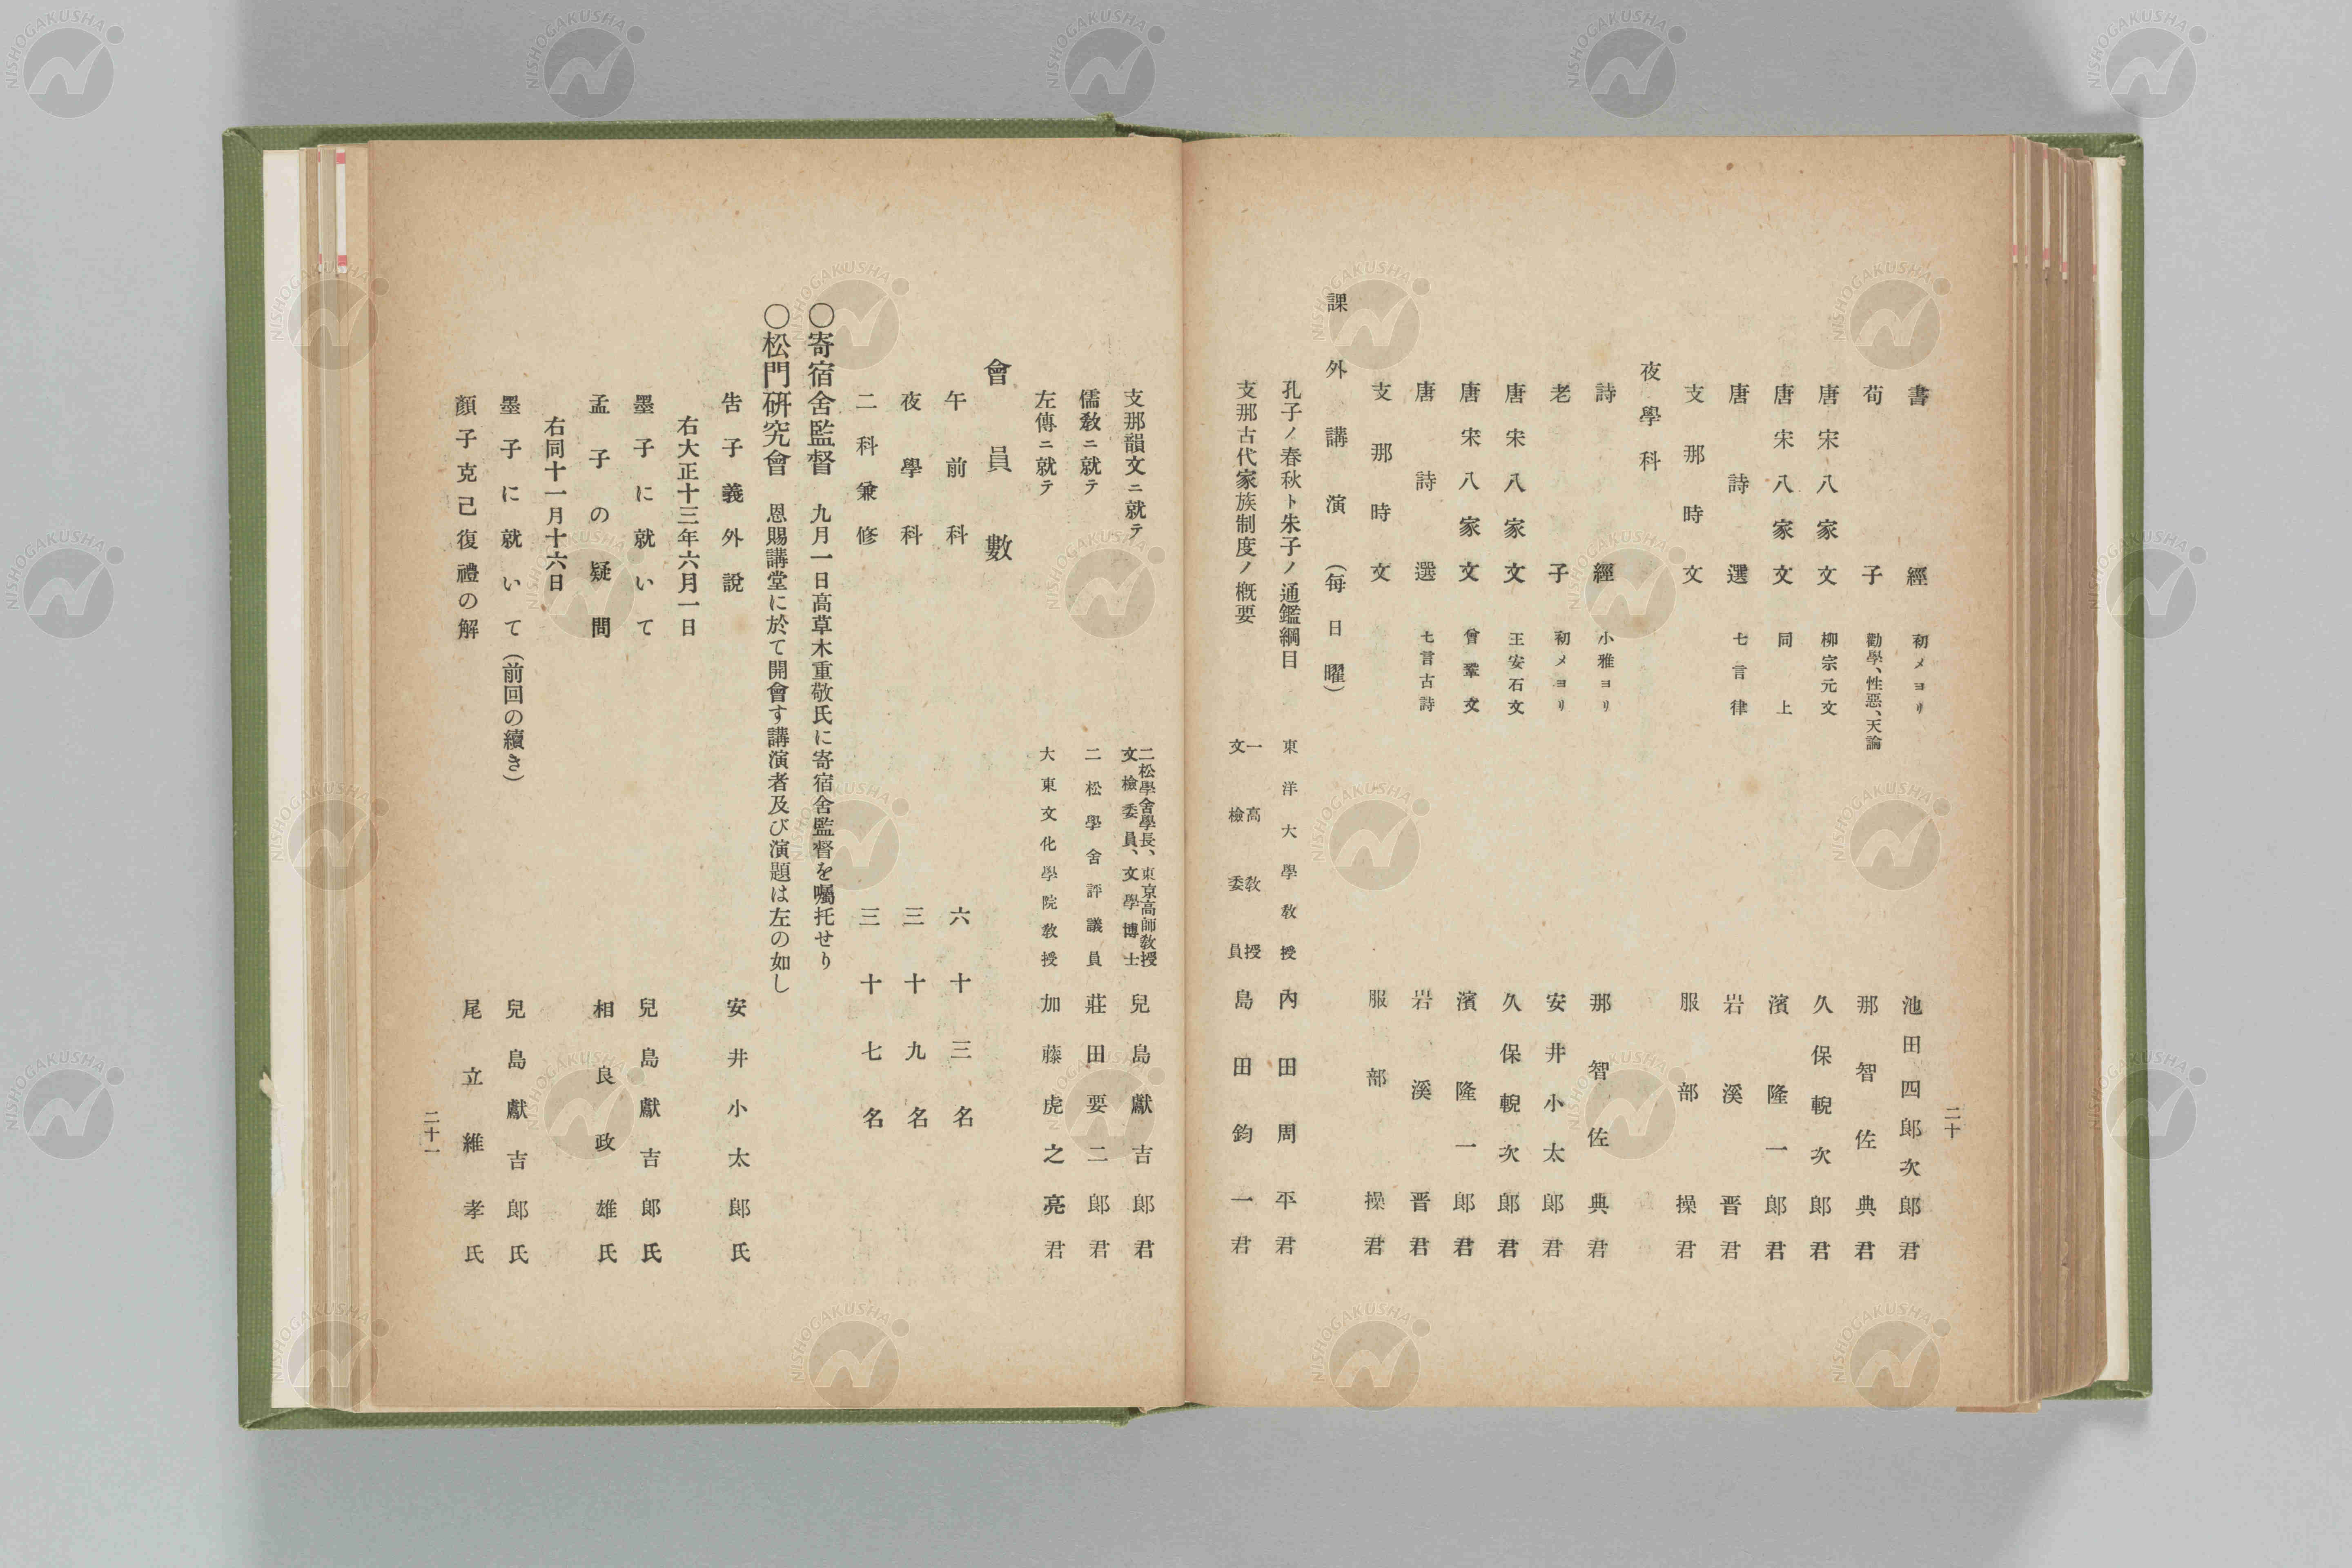 二十
書經 初メヨリ 池田四郎次郎君
荀子 勸學、性惡、天論 那智佐典君
唐宋八家文 柳宗元文 久保輗次郎君
唐宋八家文 同上 濱隆一郎君
唐詩選 七言律 岩溪晋君
支那時文 服部操君
夜學科
詩經 小雅ヨリ 那智佐典君
老子 初メヨリ 安井小太郎君
唐宋八家文 王安石文 久保輗次郎君
唐宋八家文 曾鞏文 濱隆一郎君
唐詩選 七言古詩 岩溪晋君
支那時文 服部操君
課外講演(每日曜)
孔子ノ春秋ト朱子ノ通鑑綱目 東洋大學敎授 內田周平君
支那古代家族制度ノ槪要 一高敎授 文檢委員 島田鈞一君
支那韻文ニ就テ 二松學舍學長、東京高師敎授 文檢委員、文學博士 兒島獻吉郎君
儒敎ニ就テ 二松學舍評議員 莊田要二郎君
左傳ニ就テ 大東文化學院敎授 加藤虎之亮君
會員數
午前科 六十三名
夜學科 三十九名
二科兼修 三十七名
〇寄宿舍監督 九月一日高草木重敬氏に寄宿舍監督を囑托せり
〇松門硏究會 恩賜講堂に於て開會す講演者及び演題は左の如し
告子義外說 安井小太郎氏
右大正十三年六月一日
墨子に就いて 兒島獻吉郎氏
孟子の疑問 相良政雄氏
右同十一月十六日
墨子に就いて(前回の續き) 兒島獻吉郎氏
顏子克己復禮の解 尾立維孝氏
二十一
NISHOGAKUSHA